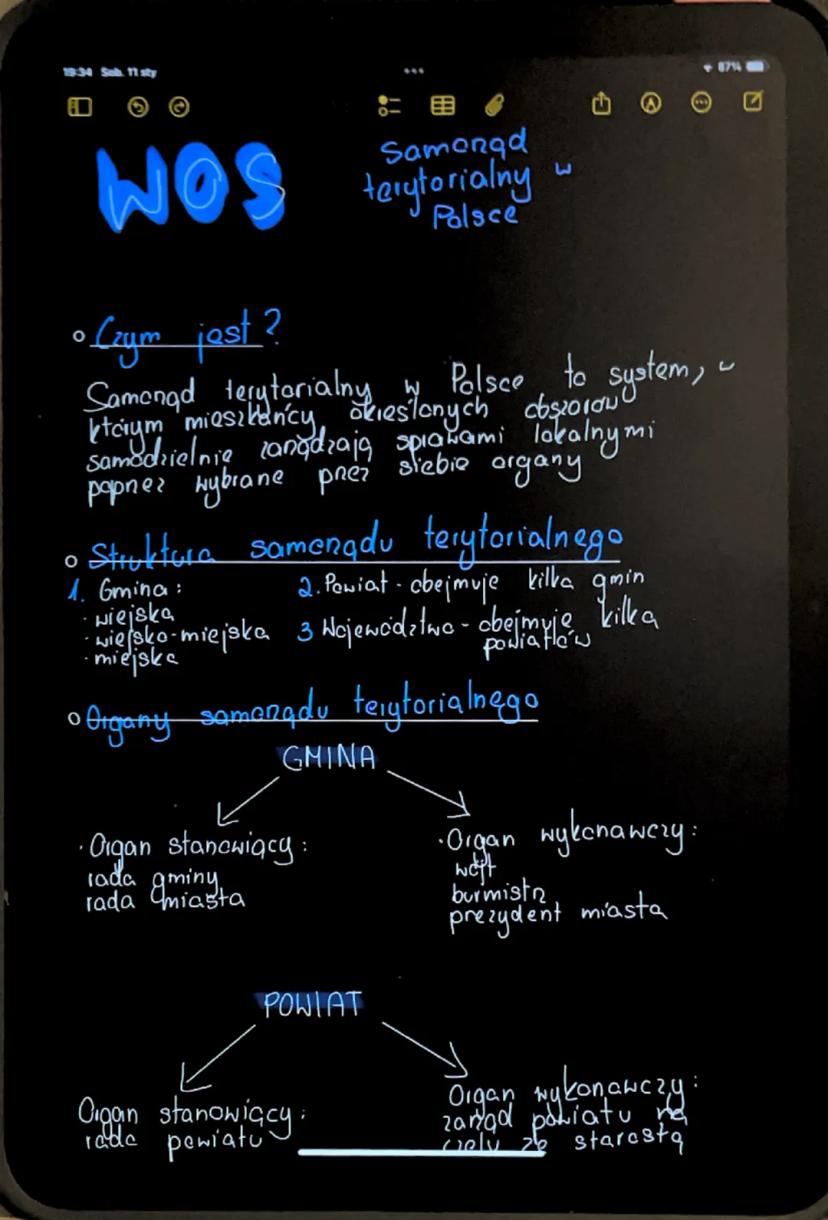 19:34 Sob. 11 sty
87%
WOS
Samorząd
terytorialny w
Polsce
Czym jest?
Samorząd terytorialny w Polsce to system, w
którym mieszkańcy określonych obszarów
samodzielnie zarządzają sprawami lokalnymi
poprzez wybrane przez siebie organy
Struktura samorządu terytorialnego
1. Gmina:
· wiejska
· wiejsko-miejska
· miejska
2. Powiat - obejmuje kilka gmin
3 Województwo - obejmuje kilka
powiatów
Organy samorządu terytorialnego
GMINA
· Organ stanowiący:
rada gminy
rada miasta
· Organ wykonawczy:
wójt
burmistrz
prezydent miasta
POWIAT
Organ stanowiący:
rada powiatu
Organ wykonawczy:
zarząd powiatu na
czelu ze starostą